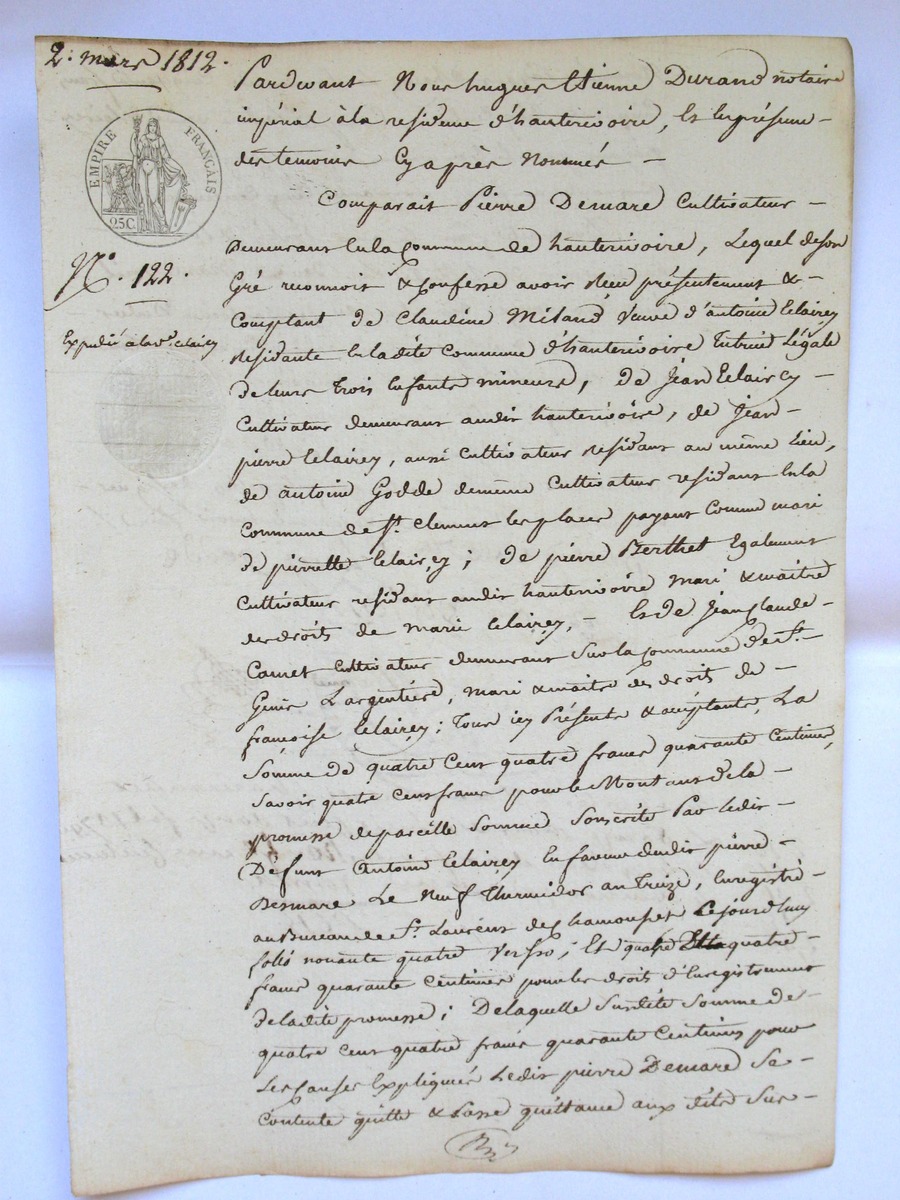 2. mars 1812.
EMPIRE FRANÇAIS
25C.
N.o 122.
Expedié à la ve. éclairey
Pardevant Nous hugues Etienne Durand notaire
impérial à la residence d'hauterivoire, et en présence
des temoins Cy après Nommés
Comparait Pierre Demare Cultivateur
Demeurant en la Commune de hauterivoire, Lequel de son
Gré reconnoit & Confesse avoir Reçu présentement &
Comptant de Claudine Miland Veuve d'antoine Eclairey
Residante en ladite Commune d'hauterivoire Tutrice Légale
De leurs Trois Enfants mineurs, De Jean Eclaircy
Cultivateur demeurant audit hauterivoire, de Jean
pierre Eclairey, aussi Cultivateur residant au même Lieu,
de antoine Godde demême Cultivateur residant en la
Commune de St. Clement les places payant Comme mari
de pierrette Eclairey; De pierre Berthet Egalement
Cultivateur residant audit hauterivoire Mari & maitre
des droits de Marie Eclairey, Et de Jean Claude
Camet Cultivateur demeurant Sur la Commune de St.
Genis L'argentière, mari & maitre des droits de
françoise Eclairey; Tous icy Présents & acceptants, La
Somme de quatre Cent quatre francs quarante Centimes,
Savoir quatre Cent francs pour le Montant de la
promesse de pareille Somme Souscrite Par ledit
Défunt Antoine Eclairey En faveur dudit pierre
Desmare Le Neuf Thermidor an Treize, Enregistré
au Bureau de St. Laurent de Chamousset Cejourd'huy
folio nonante quatre Verso; Et quatre
francs quarante Centimes pour les droits d'Enregistrement
de ladite promesse; De laquelle Susdite Somme de
quatre Cent quatre francs quarante Centimes pour
Les Causes Expliquées Ledit pierre Demare Se
Contente quitte & Passe quittance aux dits Sus